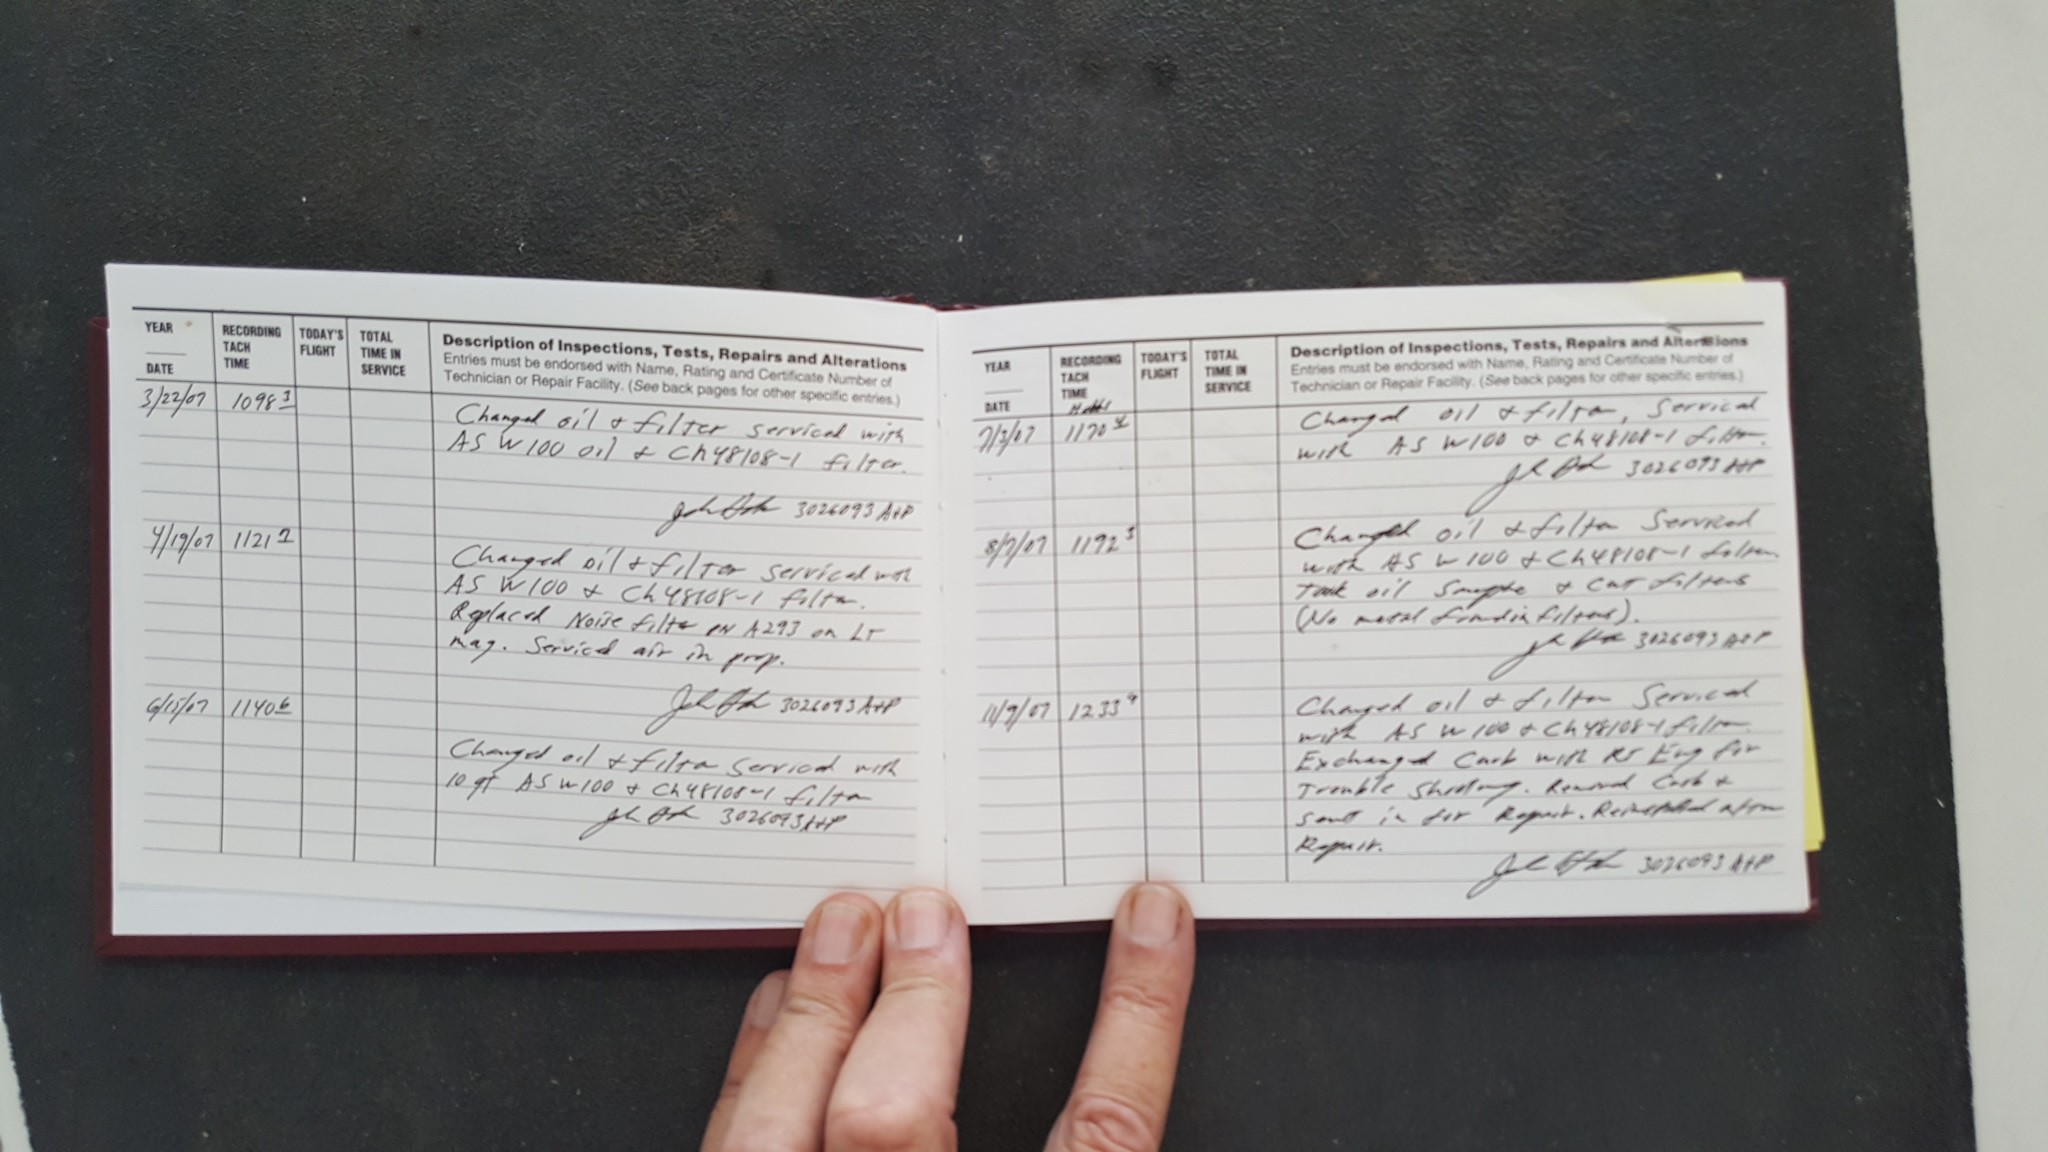 YEAR
DATE
RECORDING
TACH
TIME
TODAY'S
FLIGHT
TOTAL
TIME IN
SERVICE
Description of Inspections, Tests, Repairs and Alterations
Entries must be endorsed with Name, Rating and Certificate Number of
Technician or Repair Facility. (See back pages for other specific entries.)
3/22/07 1098
Changed oil & filter serviced with
AS W100 oil & Ch48108-1 filter.
3026093 A+P
4/19/07 1121
Changed oil & filter serviced with
AS W100 & Ch48108-1 filter.
Replaced Noise filter PN A293 on LT
mag. Serviced air in prop.
3026093 A+P
6/15/07 1140 6
Changed oil & filter serviced with
10 qt AS W100 & Ch48108-1 filter
3026093 A+P
YEAR
DATE
RECORDING
TACH
TIME
Hobbs
TODAY'S
FLIGHT
TOTAL
TIME IN
SERVICE
Description of Inspections, Tests, Repairs and Alterations
Entries must be endorsed with Name, Rating and Certificate Number of
Technician or Repair Facility. (See back pages for other specific entries.)
7/3/07 1170
Changed oil & filter, Serviced
with AS W100 & Ch48108-1 filter.
3026093 A+P
8/7/07 1192
Changed oil & filter Serviced
with AS W100 & Ch48108-1 filter.
Took oil Sample & Cut filters
(No metal found in filters).
3026093 A+P
11/9/07 1233
Changed oil & filter Serviced
with AS W100 & Ch48108-1 filter.
Exchanged Carb with Rt Eng for
Trouble Shooting. Removed Carb &
sent in for Repair. Reinstalled after
Repair.
3026093 A+P